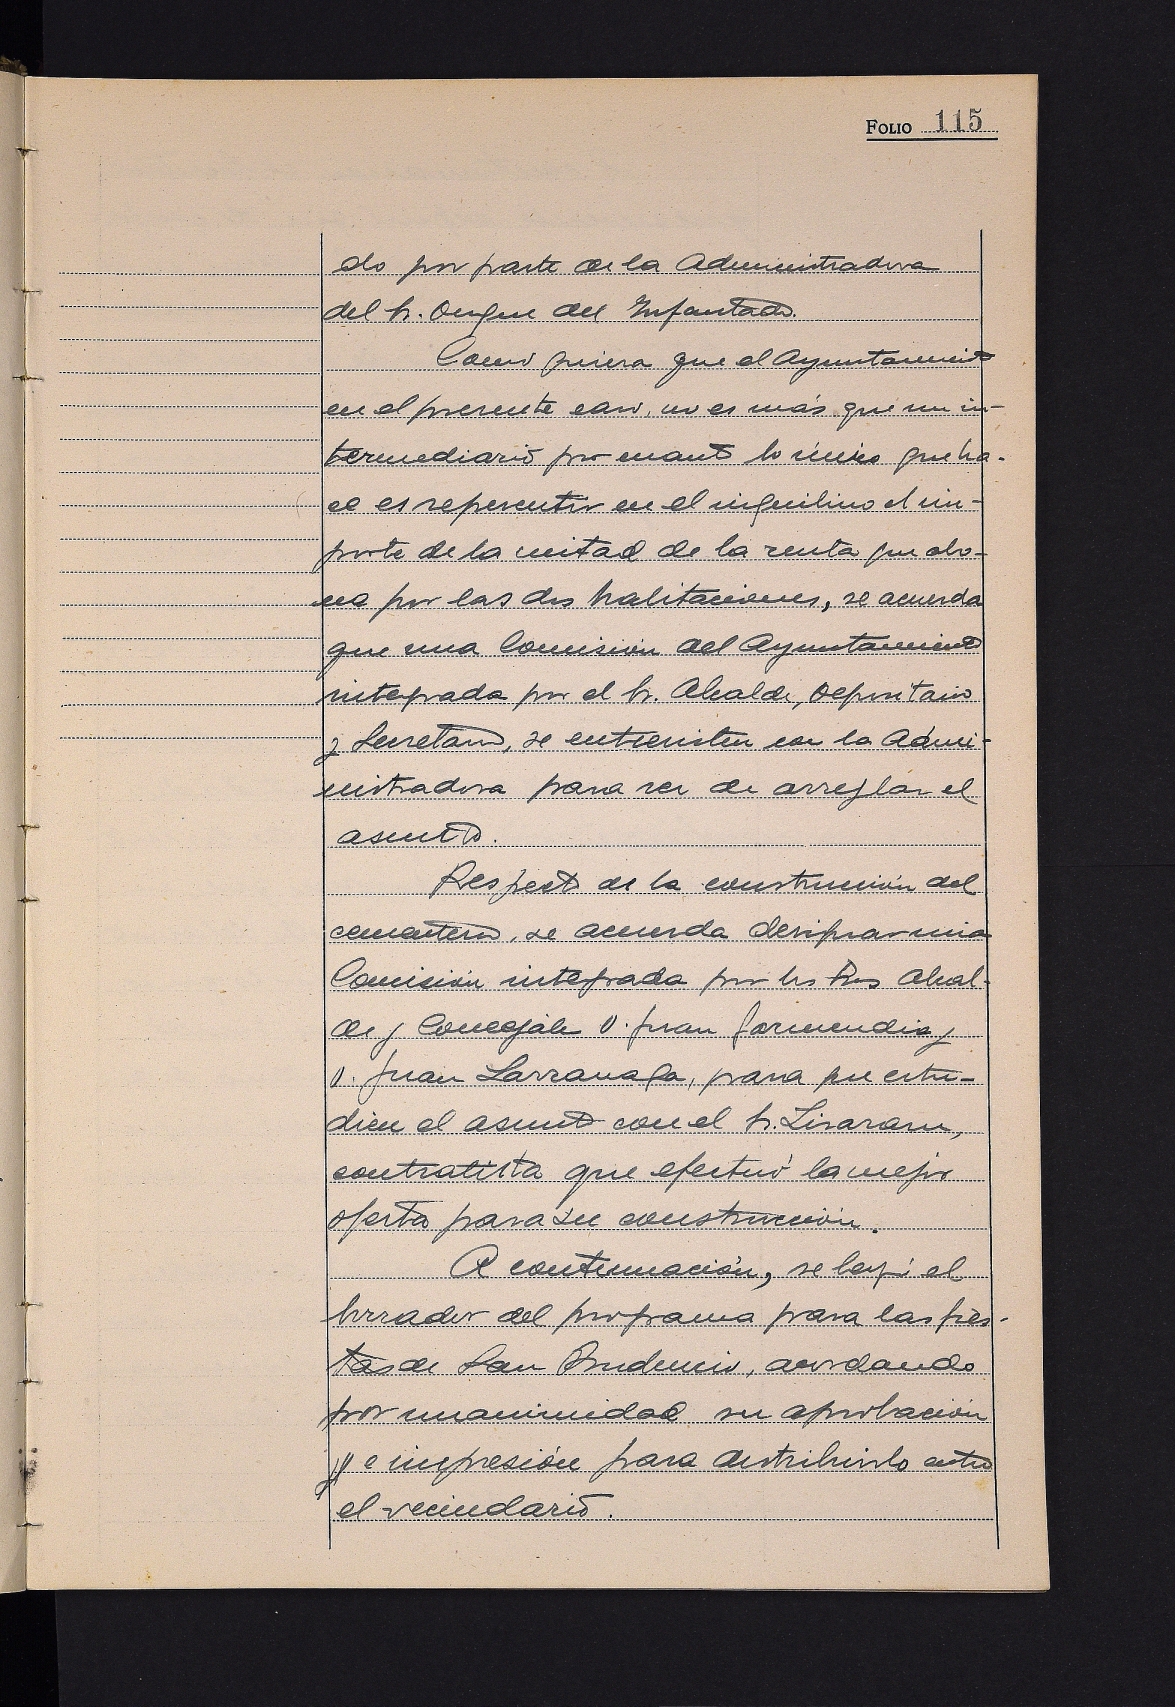 FOLIO 115
do por parte de la Administradora
del Sr. Duque del Infantado.
Como quiera que el Ayuntamiento
en el presente caso, no es más que un in-
termediario por cuanto lo único que ha-
ce es repercutir en el inquilino el im-
porte de la mitad de la renta que abo-
na por las dos habitaciones, se acuerda
que una Comisión del Ayuntamiento
integrada por el Sr. Alcalde, Depositario
y Secretario, se entrevisten con la Admi-
nistradora para ver de arreglar el
asunto.
Respecto de la construcción del
cementerio, se acuerda designar una
Comisión integrada por los Sres Alcal-
de y Concejales D. Juan Garmendia y
D. Juan Larrañaga, para que estu-
dien el asunto con el Sr. Lizaranzu,
contratista que efectuó la mejor
oferta para su construcción.
A continuación, se leyó el
borrador del programa para las fies-
tas de San Prudencio, acordando
por unanimidad su aprobación
e impresión para distribuirlo entre
el vecindario.